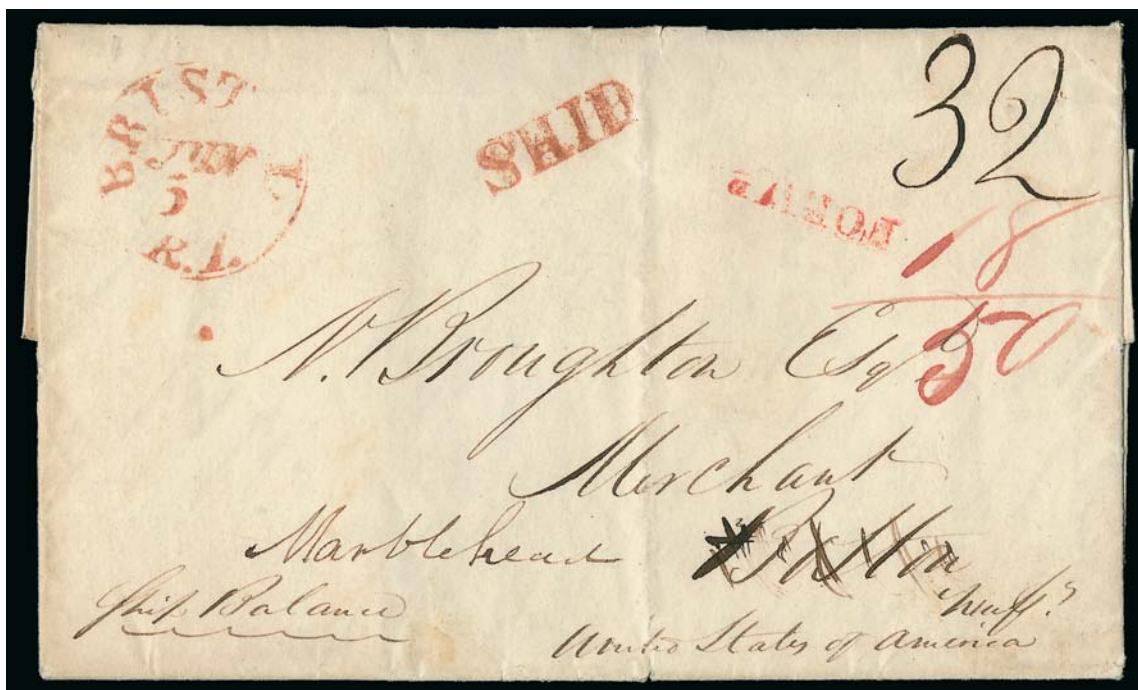 BRISTOL
JUN
5
R.I.
SHIP
32
18
50
N. Broughton Esqr
Merchant
Marblehead Boston
Ship Balance
United States of America